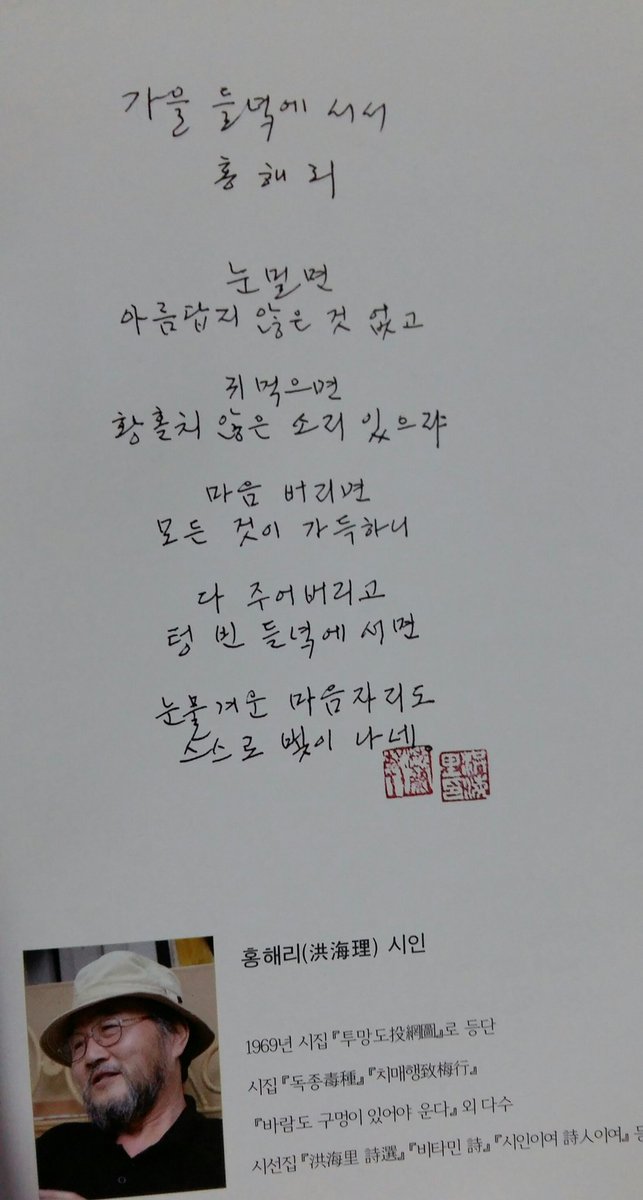 가을 들녘에 서서
홍해리
눈멀면
아름답지 않은 것 없고
귀먹으면
황홀치 않은 소리 있으랴
마음 버리면
모든 것이 가득하니
다 주어버리고
텅 빈 들녘에 서면
눈물겨운 마음자리도
스스로 빛이 나네.
홍해리(洪海理) 시인
1969년 시집 『투망도投網圖』로 등단
시집 『독종毒種』 『치매행致梅行』
『바람도 구멍이 있어야 운다』 외 다수
시선집 『洪海里 詩選』 『비타민 詩』 『시인이여 詩人이여』 등